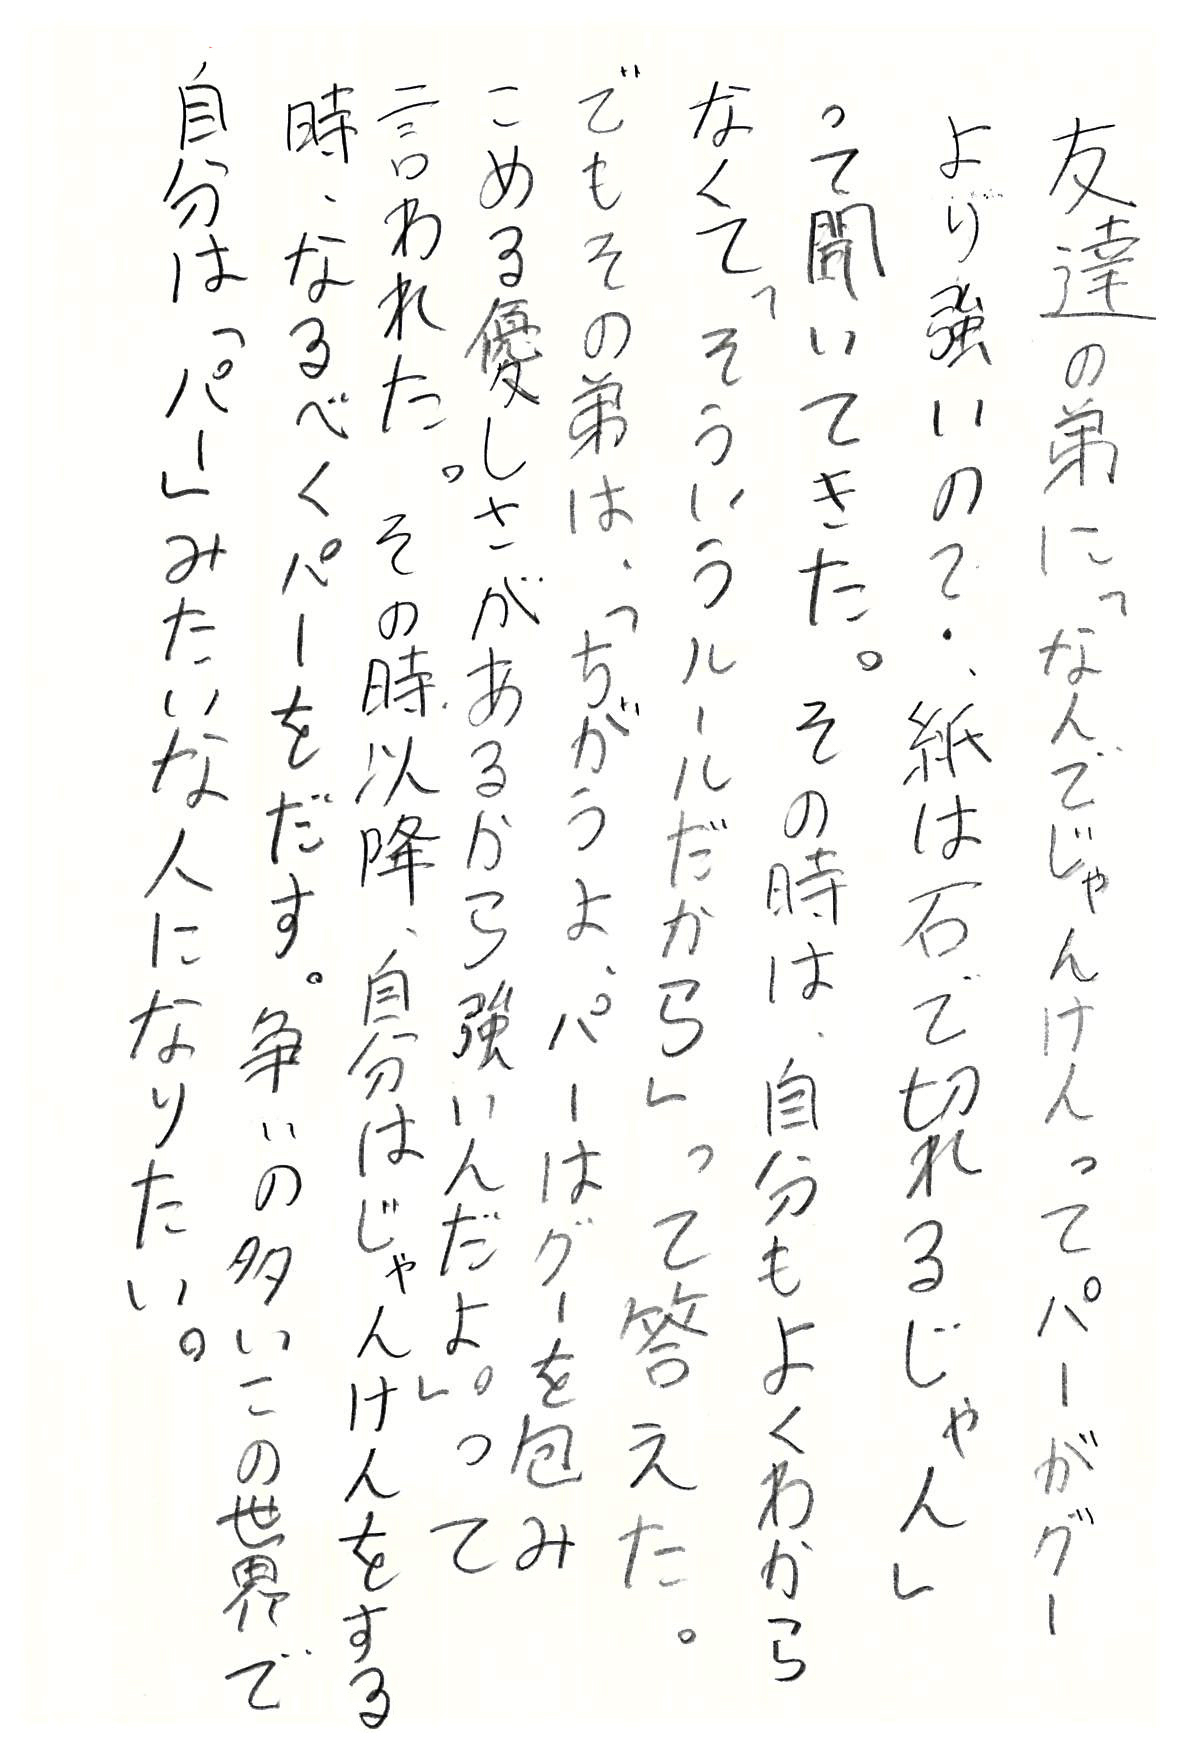 友達の弟に「なんでじゃんけんってパーがグー
より強いの？、紙は石で切れるじゃん」
って聞いてきた。その時は、自分もよくわから
なくて「そういうルールだから」って答えた。
でもその弟は、「ちがうよ、パーはグーを包み
こめる優しさがあるから強いんだよ。」って
言われた。その時以降、自分はじゃんけんをする
時、なるべくパーをだす。争いの多いこの世界で
自分は「パー」みたいな人になりたい。